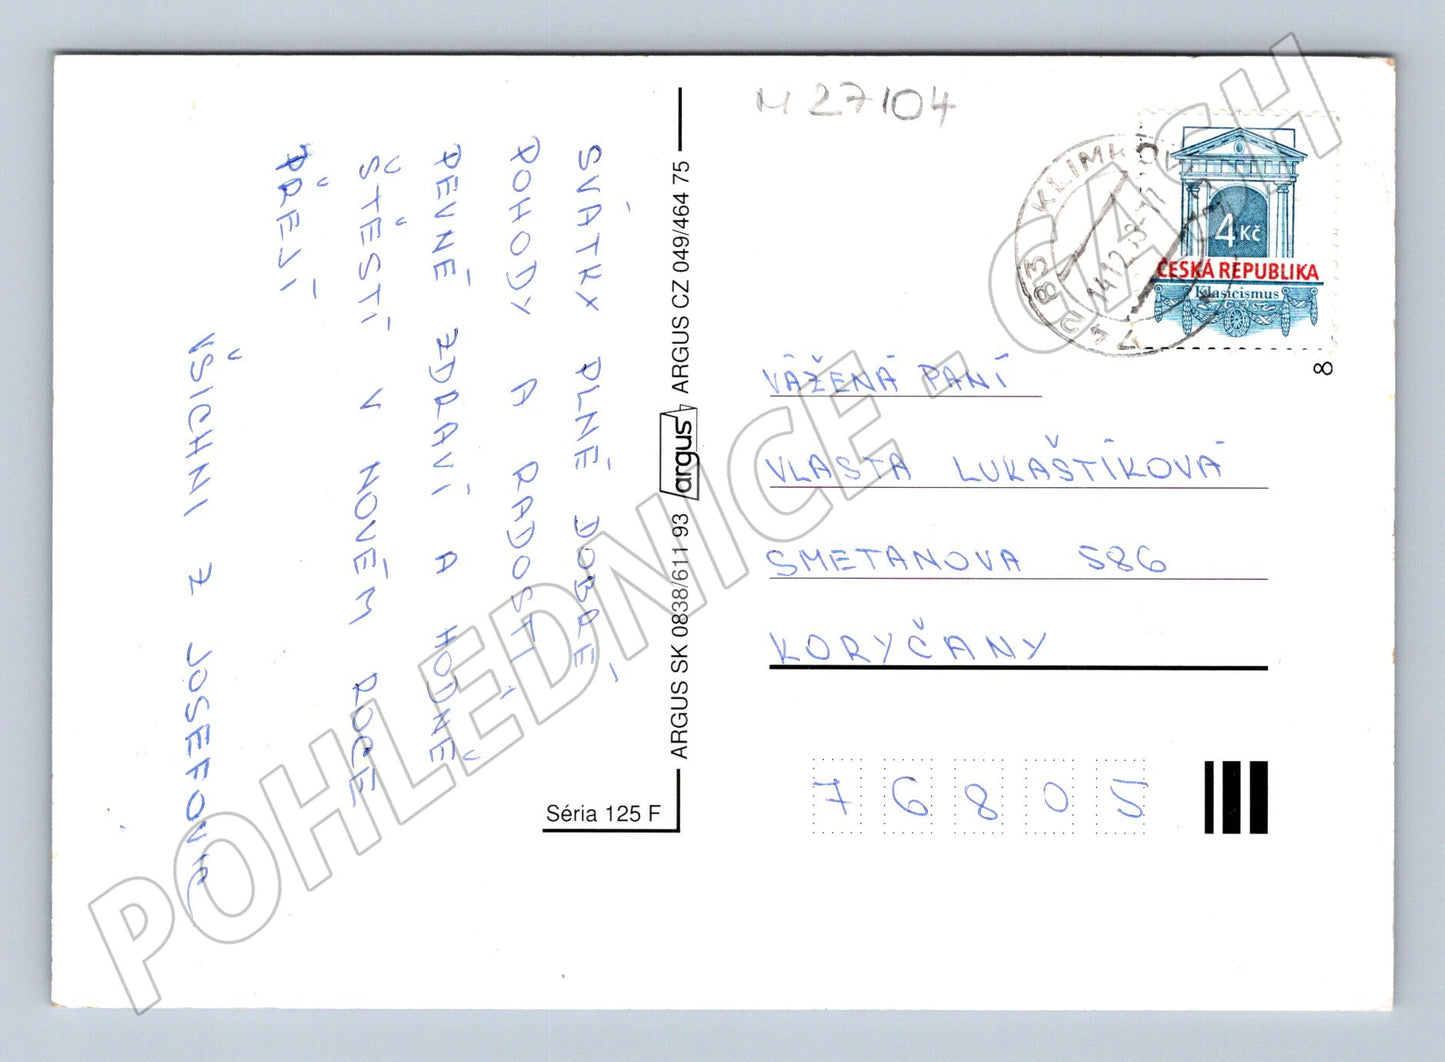 SVÁTKY PLNÉ DOBRÉ
POHODY A RADOSTÍ
PEVNÉ ZDRAVÍ A HODNĚ
ŠTĚSTÍ V NOVÉM ROCE
PŘEJÍ
VŠICHNI Z JOSEFOVIC
ARGUS SK 0838/611 93 argus ARGUS CZ 049/464 75
Séria 125 F
M 27104
742 83 KLIMKO
14.12.
4 Kč
ČESKÁ REPUBLIKA
Klasicismus
8
VÁŽENÁ PANÍ
VLASTA LUKAŠTÍKOVÁ
SMETANOVA 586
KORYČANY
76805
POHLEDNICE - CASH